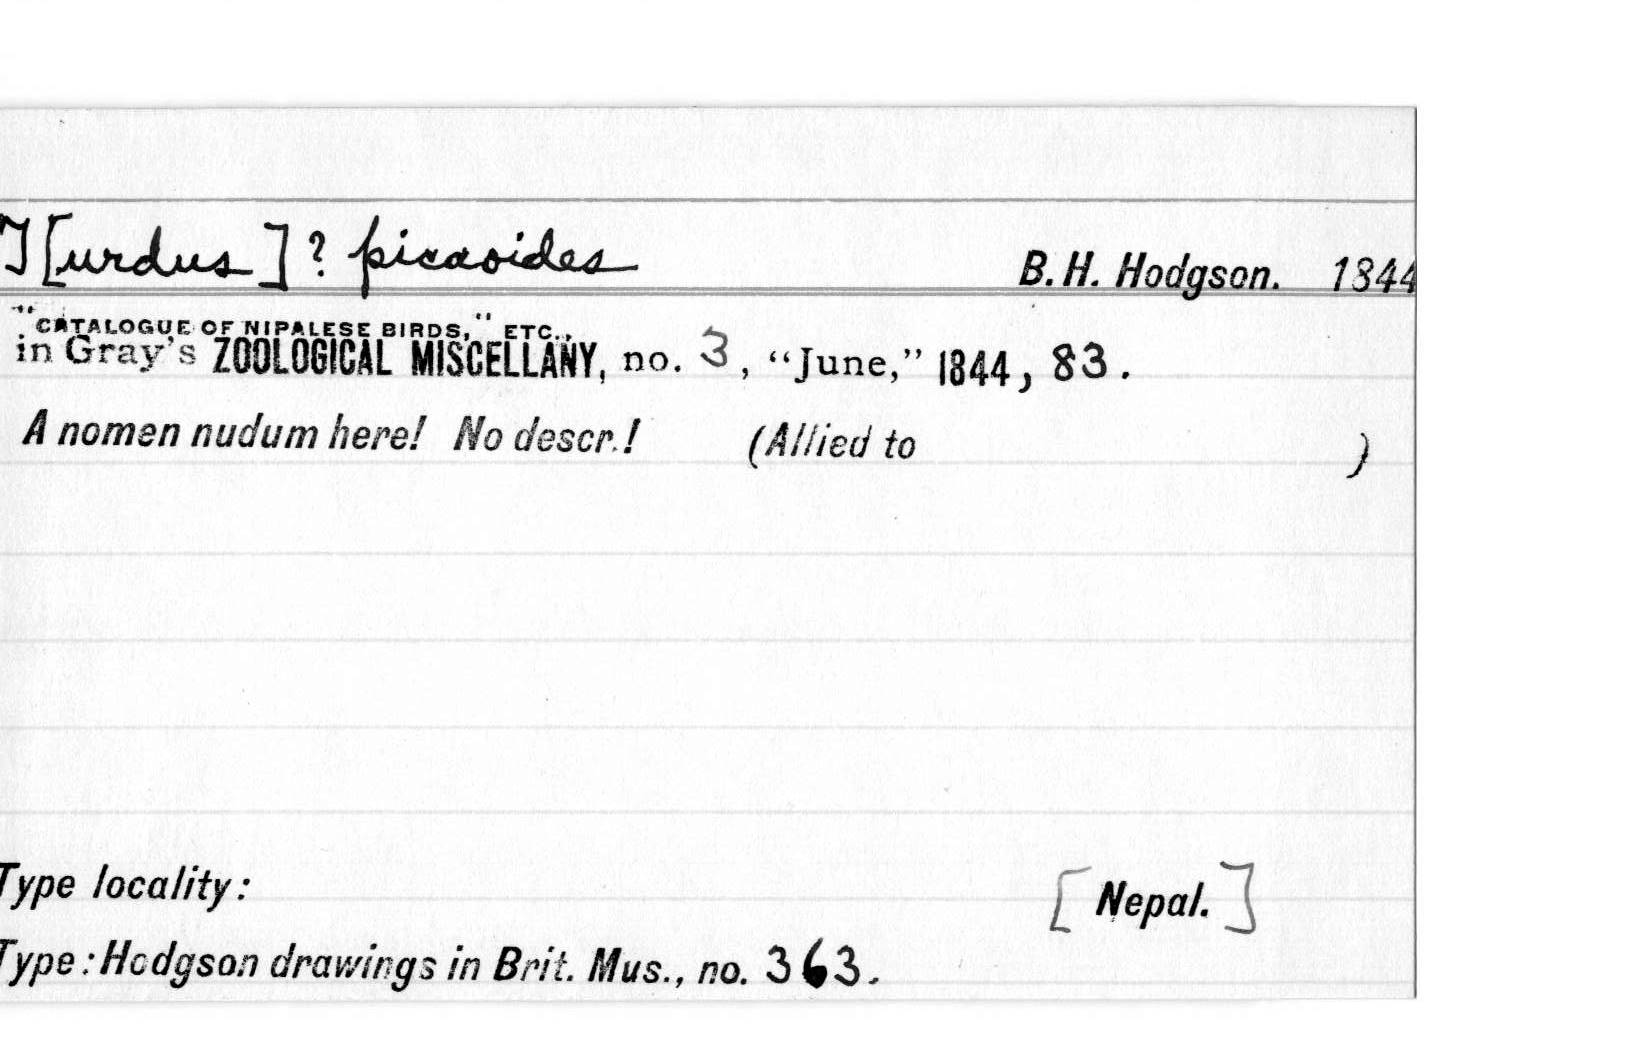 T[urdus]? picaoides B. H. Hodgson. 1844
"CATALOGUE OF NIPALESE BIRDS," ETC.,
in Gray's ZOOLOGICAL MISCELLANY, no. 3, "June," 1844, 83.
A nomen nudum here! No descr.! (Allied to )
Type locality: [Nepal.]
Type: Hodgson drawings in Brit. Mus., no. 363.